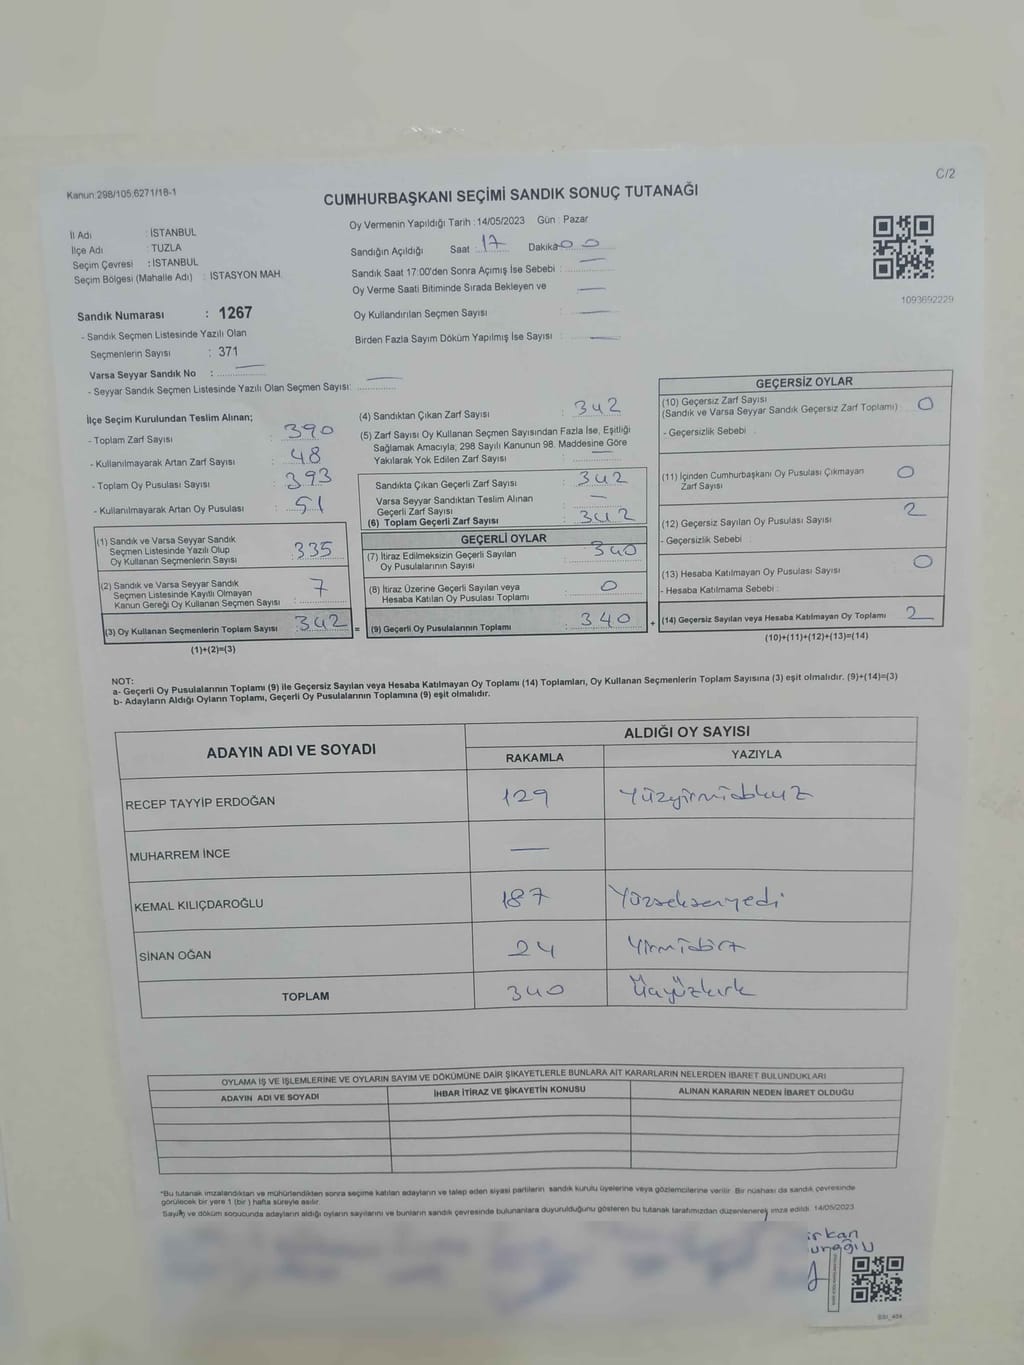 Kanun:298/105,6271/18-1
C/2
CUMHURBAŞKANI SEÇİMİ SANDIK SONUÇ TUTANAĞI
İl Adı : İSTANBUL
İlçe Adı : TUZLA
Seçim Çevresi : İSTANBUL
Seçim Bölgesi (Mahalle Adı) : İSTASYON MAH.
Oy Vermenin Yapıldığı Tarih : 14/05/2023 Gün : Pazar
Sandığın Açıldığı Saat 17 Dakika 00
Sandık Saat 17:00'den Sonra Açımış İse Sebebi : —
Oy Verme Saati Bitiminde Sırada Bekleyen ve —
Oy Kullandırılan Seçmen Sayısı : —
Birden Fazla Sayım Döküm Yapılmış İse Sayısı : —
1093692229
Sandık Numarası : 1267
- Sandık Seçmen Listesinde Yazılı Olan
Seçmenlerin Sayısı : 371
Varsa Seyyar Sandık No : —
- Seyyar Sandık Seçmen Listesinde Yazılı Olan Seçmen Sayısı: —
İlçe Seçim Kurulundan Teslim Alınan;
- Toplam Zarf Sayısı : 390
- Kullanılmayarak Artan Zarf Sayısı : 48
- Toplam Oy Pusulası Sayısı : 393
- Kullanılmayarak Artan Oy Pusulası : 51
(1) Sandık ve Varsa Seyyar Sandık
Seçmen Listesinde Yazılı Olup
Oy Kullanan Seçmenlerin Sayısı : 335
(2) Sandık ve Varsa Seyyar Sandık
Seçmen Listesinde Kayıtlı Olmayan
Kanun Gereği Oy Kullanan Seçmen Sayısı : 7
(3) Oy Kullanan Seçmenlerin Toplam Sayısı : 342 =
(1)+(2)=(3)
(4) Sandıktan Çıkan Zarf Sayısı : 342
(5) Zarf Sayısı Oy Kullanan Seçmen Sayısından Fazla İse, Eşitliği
Sağlamak Amacıyla; 298 Sayılı Kanunun 98. Maddesine Göre
Yakılarak Yok Edilen Zarf Sayısı : —
Sandıkta Çıkan Geçerli Zarf Sayısı : 342
Varsa Seyyar Sandıktan Teslim Alınan
Geçerli Zarf Sayısı : —
(6) Toplam Geçerli Zarf Sayısı : 342
GEÇERLİ OYLAR
(7) İtiraz Edilmeksizin Geçerli Sayılan
Oy Pusulalarının Sayısı : 340
(8) İtiraz Üzerine Geçerli Sayılan veya
Hesaba Katılan Oy Pusulası Toplamı : 0
(9) Geçerli Oy Pusulalarının Toplamı : 340 +
GEÇERSİZ OYLAR
(10) Geçersiz Zarf Sayısı
(Sandık ve Varsa Seyyar Sandık Geçersiz Zarf Toplamı) : 0
- Geçersizlik Sebebi :
(11) İçinden Cumhurbaşkanı Oy Pusulası Çıkmayan
Zarf Sayısı 0
(12) Geçersiz Sayılan Oy Pusulası Sayısı 2
- Geçersizlik Sebebi :
(13) Hesaba Katılmayan Oy Pusulası Sayısı 0
- Hesaba Katılmama Sebebi :
(14) Geçersiz Sayılan veya Hesaba Katılmayan Oy Toplamı 2
(10)+(11)+(12)+(13)=(14)
NOT:
a- Geçerli Oy Pusulalarının Toplamı (9) ile Geçersiz Sayılan veya Hesaba Katılmayan Oy Toplamı (14) Toplamları, Oy Kullanan Seçmenlerin Toplam Sayısına (3) eşit olmalıdır. (9)+(14)=(3)
b- Adayların Aldığı Oyların Toplamı, Geçerli Oy Pusulalarının Toplamına (9) eşit olmalıdır.
ADAYIN ADI VE SOYADI
ALDIĞI OY SAYISI
RAKAMLA YAZIYLA
RECEP TAYYİP ERDOĞAN 129 Yüzyirmidokuz
MUHARREM İNCE —
KEMAL KILIÇDAROĞLU 187 Yüzseksenyedi
SİNAN OĞAN 24 Yirmidört
TOPLAM 340 Üçyüzkırk
OYLAMA İŞ VE İŞLEMLERİNE VE OYLARIN SAYIM VE DÖKÜMÜNE DAİR ŞİKAYETLERLE BUNLARA AİT KARARLARIN NELERDEN İBARET BULUNDUKLARI
ADAYIN ADI VE SOYADI İHBAR İTİRAZ VE ŞİKAYETİN KONUSU ALINAN KARARIN NEDEN İBARET OLDUĞU
*Bu tutanak imzalandıktan ve mühürlendikten sonra seçime katılan adayların ve talep eden siyasi partilerin sandık kurulu üyelerine veya gözlemcilerine verilir. Bir nüshası da sandık çevresinde
görülecek bir yere 1 (bir) hafta süreyle asılır.
Sayım ve döküm sonucunda adayların aldığı oyların sayılarını ve bunların sandık çevresinde bulunanlara duyurulduğunu gösteren bu tutanak tarafımızdan düzenlenerek imza edildi. 14/05/2023